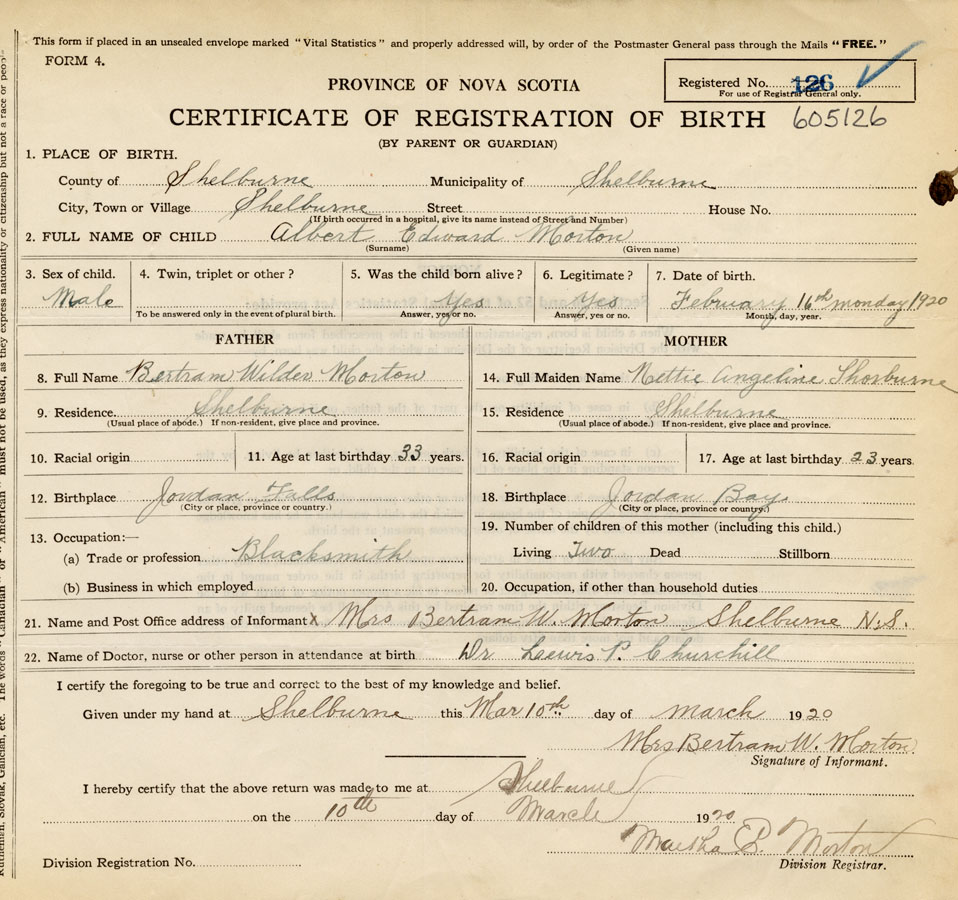 This form if placed in an unsealed envelope marked "Vital Statistics" and properly addressed will, by order of the Postmaster General pass through the Mails "FREE."
FORM 4.
PROVINCE OF NOVA SCOTIA
Registered No. 126
For use of Registrar General only.
CERTIFICATE OF REGISTRATION OF BIRTH 605126
(BY PARENT OR GUARDIAN)
1. PLACE OF BIRTH.
County of Shelburne Municipality of Shelburne
City, Town or Village Shelburne Street House No.
(If birth occurred in a hospital, give its name instead of Street and Number)
2. FULL NAME OF CHILD Albert Edward Morton
(Surname) (Given name)
3. Sex of child. 4. Twin, triplet or other? 5. Was the child born alive? 6. Legitimate? 7. Date of birth.
Male Yes Yes February 16th monday 1920
To be answered only in the event of plural birth. Answer, yes or no. Answer, yes or no. Month, day, year.
FATHER
8. Full Name Bertram Wilder Morton
9. Residence. Shelburne
(Usual place of abode.) If non-resident, give place and province.
10. Racial origin 11. Age at last birthday 33 years.
12. Birthplace Jordan Falls
(City or place, province or country.)
13. Occupation:—
(a) Trade or profession Blacksmith
(b) Business in which employed
MOTHER
14. Full Maiden Name Nettie Angeline Thorburne
15. Residence Shelburne
(Usual place of abode.) If non-resident, give place and province.
16. Racial origin 17. Age at last birthday 23 years.
18. Birthplace Jordan Bay
(City or place, province or country.)
19. Number of children of this mother (including this child.)
Living Two Dead Stillborn
20. Occupation, if other than household duties
21. Name and Post Office address of Informant X Mrs Bertram W. Morton Shelburne N.S.
22. Name of Doctor, nurse or other person in attendance at birth Dr Lewis P. Churchill
I certify the foregoing to be true and correct to the best of my knowledge and belief.
Given under my hand at Shelburne this Mar 10th day of march 1920
Mrs Bertram W. Morton
Signature of Informant.
I hereby certify that the above return was made to me at Shelburne
on the 10th day of March 1920
Martha B. Morton
Division Registration No. Division Registrar.
The words "Canadian" or "American" must not be used, as they express nationality or citizenship but not a race or
Ruthenian, Slovak, Galician, etc.